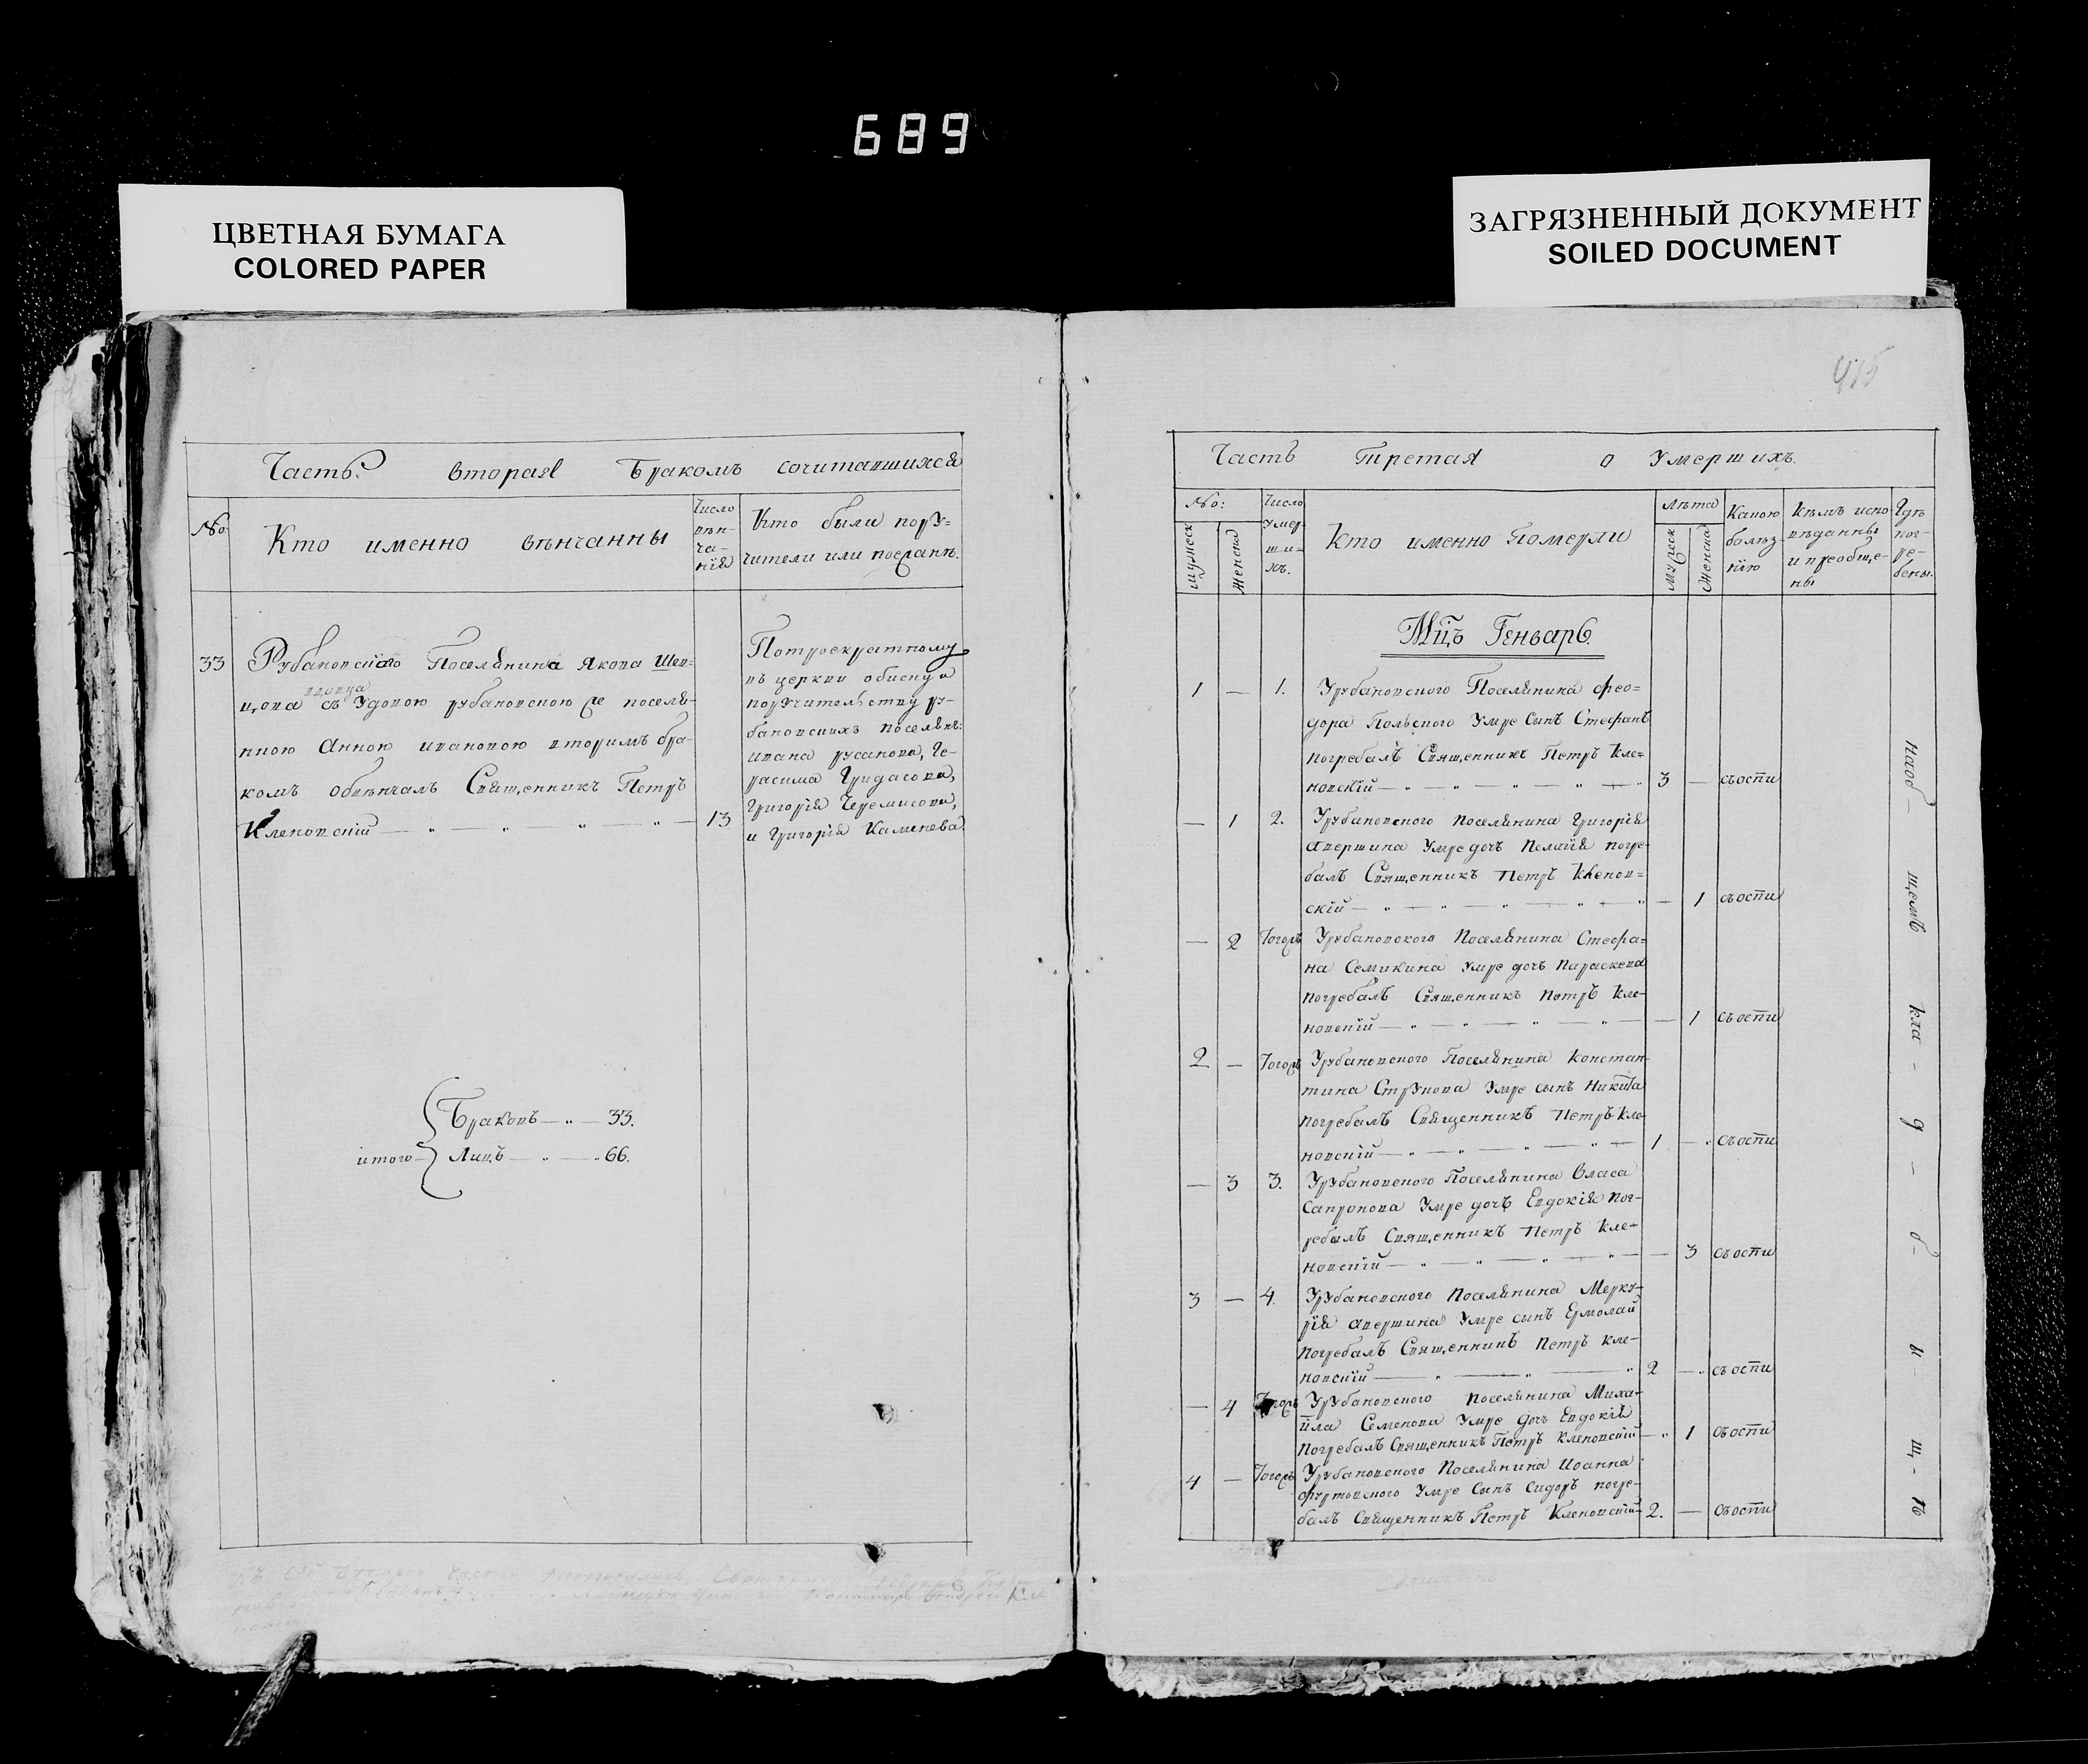 689
ЦВЕТНАЯ БУМАГА
COLORED PAPER
ЗАГРЯЗНЕННЫЙ ДОКУМЕНТ
SOILED DOCUMENT
Часть вторая Бракомъ сочитавшихся
No:
Кто именно вѣнчанны
Число
вѣн-
ча-
нія
Кто были пору=
чители или поезанъ.
33
Рубановскаго Поселянина Якова Шев=
цова вдовца съ Удовою рубановскою же поселя-
нкою Анною ивановою вторимъ бра-
комъ обвѣнчалъ Священникъ Петръ
Кленовскій
13
Потроекратному
въ церкви обиску и
поручителъству ру-
бановскихъ поселянъ:
ивана русанова, Ге-
расима Гридасова,
Григорія Черемисова,
и Григорія Каменева.
итого
Браковъ — 33.
Лицъ — 66.
415
Часть третая о Умершихъ.
No:
мужеск
женска
Число
умер-
ши-
хъ.
Кто именно Померли
лѣта
мужеск
женска
Какою
болѣз-
нію
кѣмъ испо
вѣданны
и преобще-
ны
Гдѣ
пог-
ре-
бены.
Мцъ Генварь.
1 — 1. Урубановского Поселянина Фео=
дора Польского Умре сынъ Стефанъ
погребалъ Священникъ Петръ Кле=
новскій 3 — съоспи
— 1 2. Урубановского поселянина Григорія
Авершина Умре дочь Пелагія погре-
балъ Священникъ Петръ Кленов=
скій — 1 съоспи
— 2 Тогожъ Урубановского Поселянина Стефа=
на Семикина Умре дочь Параскева
погребалъ Священникъ Петръ Кле-
новскій — 1 съоспи
2 — Тогожъ Урубановского Поселянина Констан-
тина Струкова Умре сынъ Никита
погребалъ Священникъ Петръ Кле-
новскій 1 — съоспи
— 3 3. Урубановского Поселянина Власа
Сапронова Умре дочь Евдокія пог-
ребалъ Священникъ Петръ Кле-
новскій — 3 съоспи
3 — 4. Урубановского Поселянина Мерку-
рія Авершина Умре сынъ Ермолай
погребалъ Священникъ Петръ Кле-
новскій 2 — съоспи
— 4 Тогожъ Урубановского поселянина Миха-
ила Семенова Умре дочь Евдокія
погребалъ Священникъ Петръ Кленовскій — 1 съоспи
4 — Тогожъ Урубановского Поселянина Иоанна
Фуртовского Умре сынъ Сидоръ погре-
балъ Священникъ Петръ Кленовскій 2. — съоспи
Наоб — щемъ кла - д - б - и - щ - ѣ